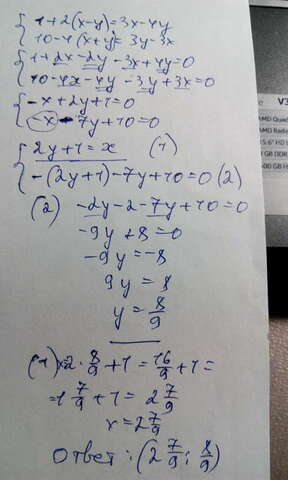 1+2(x-y)=3x-4y
10-4(x+y)=3y-3x
1+2x-2y-3x+4y=0
10-4x-4y-3y+3x=0
-x+2y+1=0
-x-7y+10=0
2y+1=x (1)
-(2y+1)-7y+10=0 (2)
(2) -2y-2-7y+10=0
-9y+8=0
-9y=-8
9y=8
y=8/9
(1) x=2·8/9+1=16/9+1=
=1 7/9+1=2 7/9
x=2 7/9
Ответ: (2 7/9; 8/9)
V3
AMD Quad
AMD Rade
15.6" HD
GB DDR
500 GB H